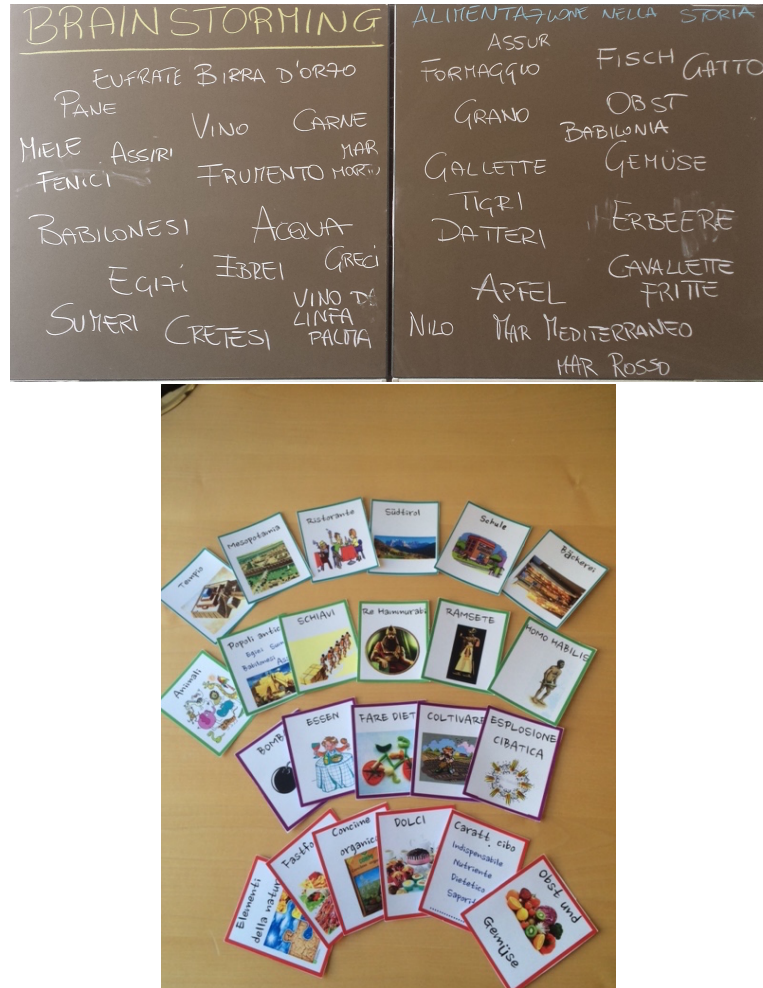 BRAINSTORMING
EUFRATE BIRRA D'ORZO
PANE
VINO CARNE
MIELE ASSIRI MAR
FENICI FRUMENTO MORTO
BABILONESI ACQUA
EGIZI EBREI GRECI
SUMERI CRETESI VINO DA
LINFA
PALMA
ALIMENTAZIONE NELLA STORIA
ASSUR
FORMAGGIO FISCH GATTO
GRANO OBST
BABILONIA
GALLETTE GEMÜSE
TIGRI
DATTERI ERBEERE
CAVALLETTE
APFEL FRITTE
NILO MAR MEDITERRANEO
MAR ROSSO
Tempio
Mesopotamia
Ristorante
Südtirol
Schule
Bäckerei
Animali
Popoli antic
Egizi
Babilonesi
SCHIAVI
Re Hammurabi
RAMSETE
HOMO HABILIS
BOMB
ESSEN
FARE DIET
COLTIVARE
ESPLOSIONE
CIBATICA
Elementi
della natur
Fastfo
Concime
organico
DOLCI
Caratt. cibo
Indispensabile
Nutriente
Dietetico
Saporit
Obst und
Gemüse